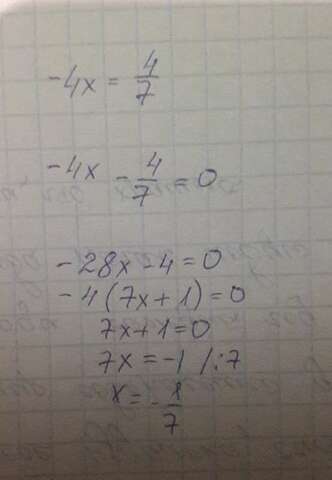 -4x = 4/7
-4x - 4/7 = 0
-28x - 4 = 0
-4(7x + 1) = 0
7x + 1 = 0
7x = -1 /:7
x = -1/7